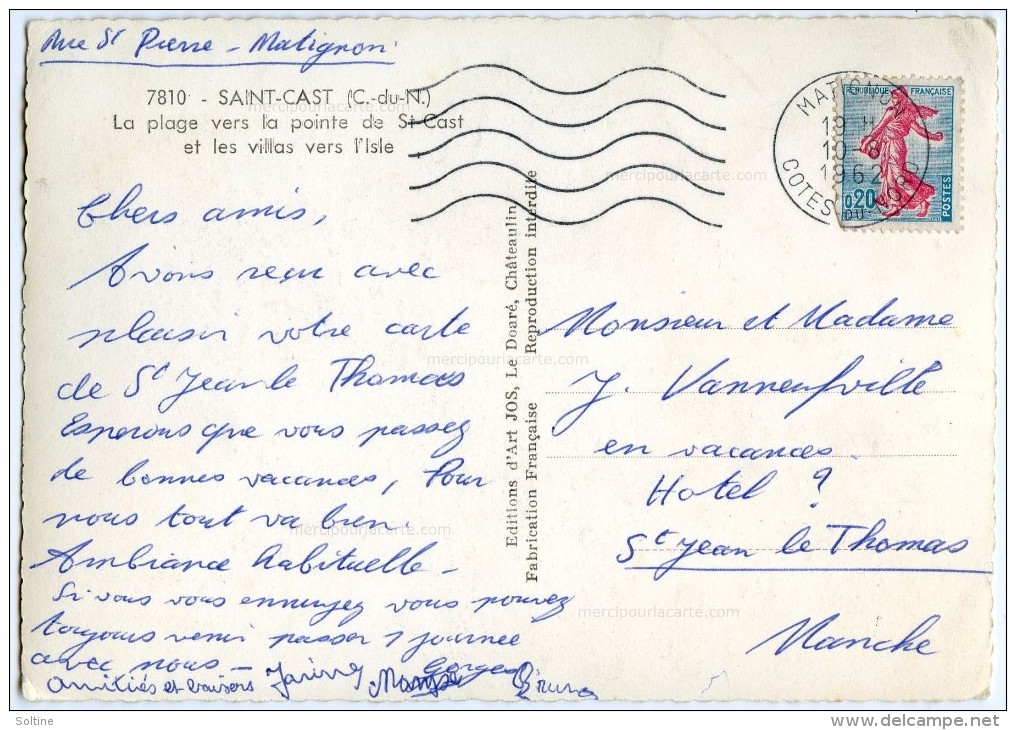 Rue St Pierre - Matignon
7810 - SAINT-CAST (C.-du-N.)
La plage vers la pointe de St-Cast
et les villas vers l'Isle
Chers amis,
Avons reçu avec
plaisir votre carte
de St Jean le Thomas
Esperons que vous passez
de bonnes vacances, Pour
nous tout va bien.
Ambiance habituelle -
Si vous vous ennuyez vous pouvez
toujours venir passer 1 journee
avec nous -
amitiés et baisers
Editions d'Art JOS, Le Doaré, Châteaulin
Fabrication Française Reproduction interdite
MATIGNON
19 H
10 - 8
1962
COTES-DU-NORD
REPUBLIQUE FRANÇAISE
0,20
POSTES
Monsieur et Madame
J. Vanneufville
en vacances.
Hotel ?
St Jean le Thomas
Manche
mercipourlacarte.com
mercipourlacarte.com
mercipourlacarte.com
mercipourlacarte.com
mercipourlacarte.com
Soltine
www.delcampe.net